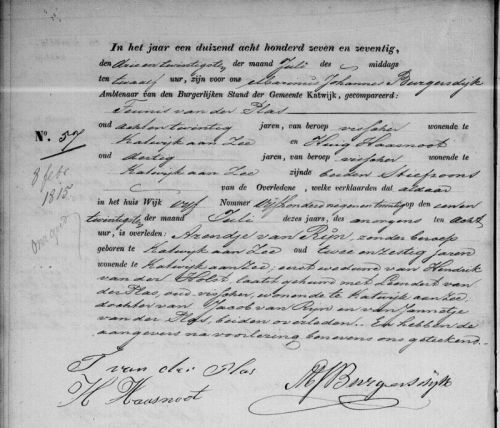 In het jaar een duizend acht honderd zeven en zeventig,
den drie en twintigsten der maand Juli des middags
ten twaalf uur, zijn voor ons Marinus Johannes Burgersdijk
Ambtenaar van den Burgerlijken Stand der Gemeente Katwijk, gecompareerd:
Teunis van der Plas
oud acht en twintig jaren, van beroep visscher wonende te
Katwijk aan Zee en Huig Haasnoot
No. 57
oud dertig jaren, van beroep visscher wonende te
Katwijk aan Zee zijnde beiden Stiefzoons
8 febr
1815
van de Overledene, welke verklaarden dat aldaar
in het huis Wijk vyf Nommer vijfhonderd negen en twintig op den een en
twintigsten der maand Juli dezes jaars, des morgens ten acht
uur, is overleden: Arendje van Rijn, zonder beroep
geboren te Katwijk aan Zee oud twee en zestig jaren
wonende te Katwijk aan Zee; eerst weduwe van Hendrik
van der laatst gehuwd met Leendert van
der Plas, oud visscher, wonende te Katwijk aan Zee;
dochter van Jacob van Rijn en van Jannetje
van der Plas, beiden overleden. En hebben de
aangevers na voorlezing benevens ons geteekend.
T van der Plas
H Haasnoot
MJBurgersdijk